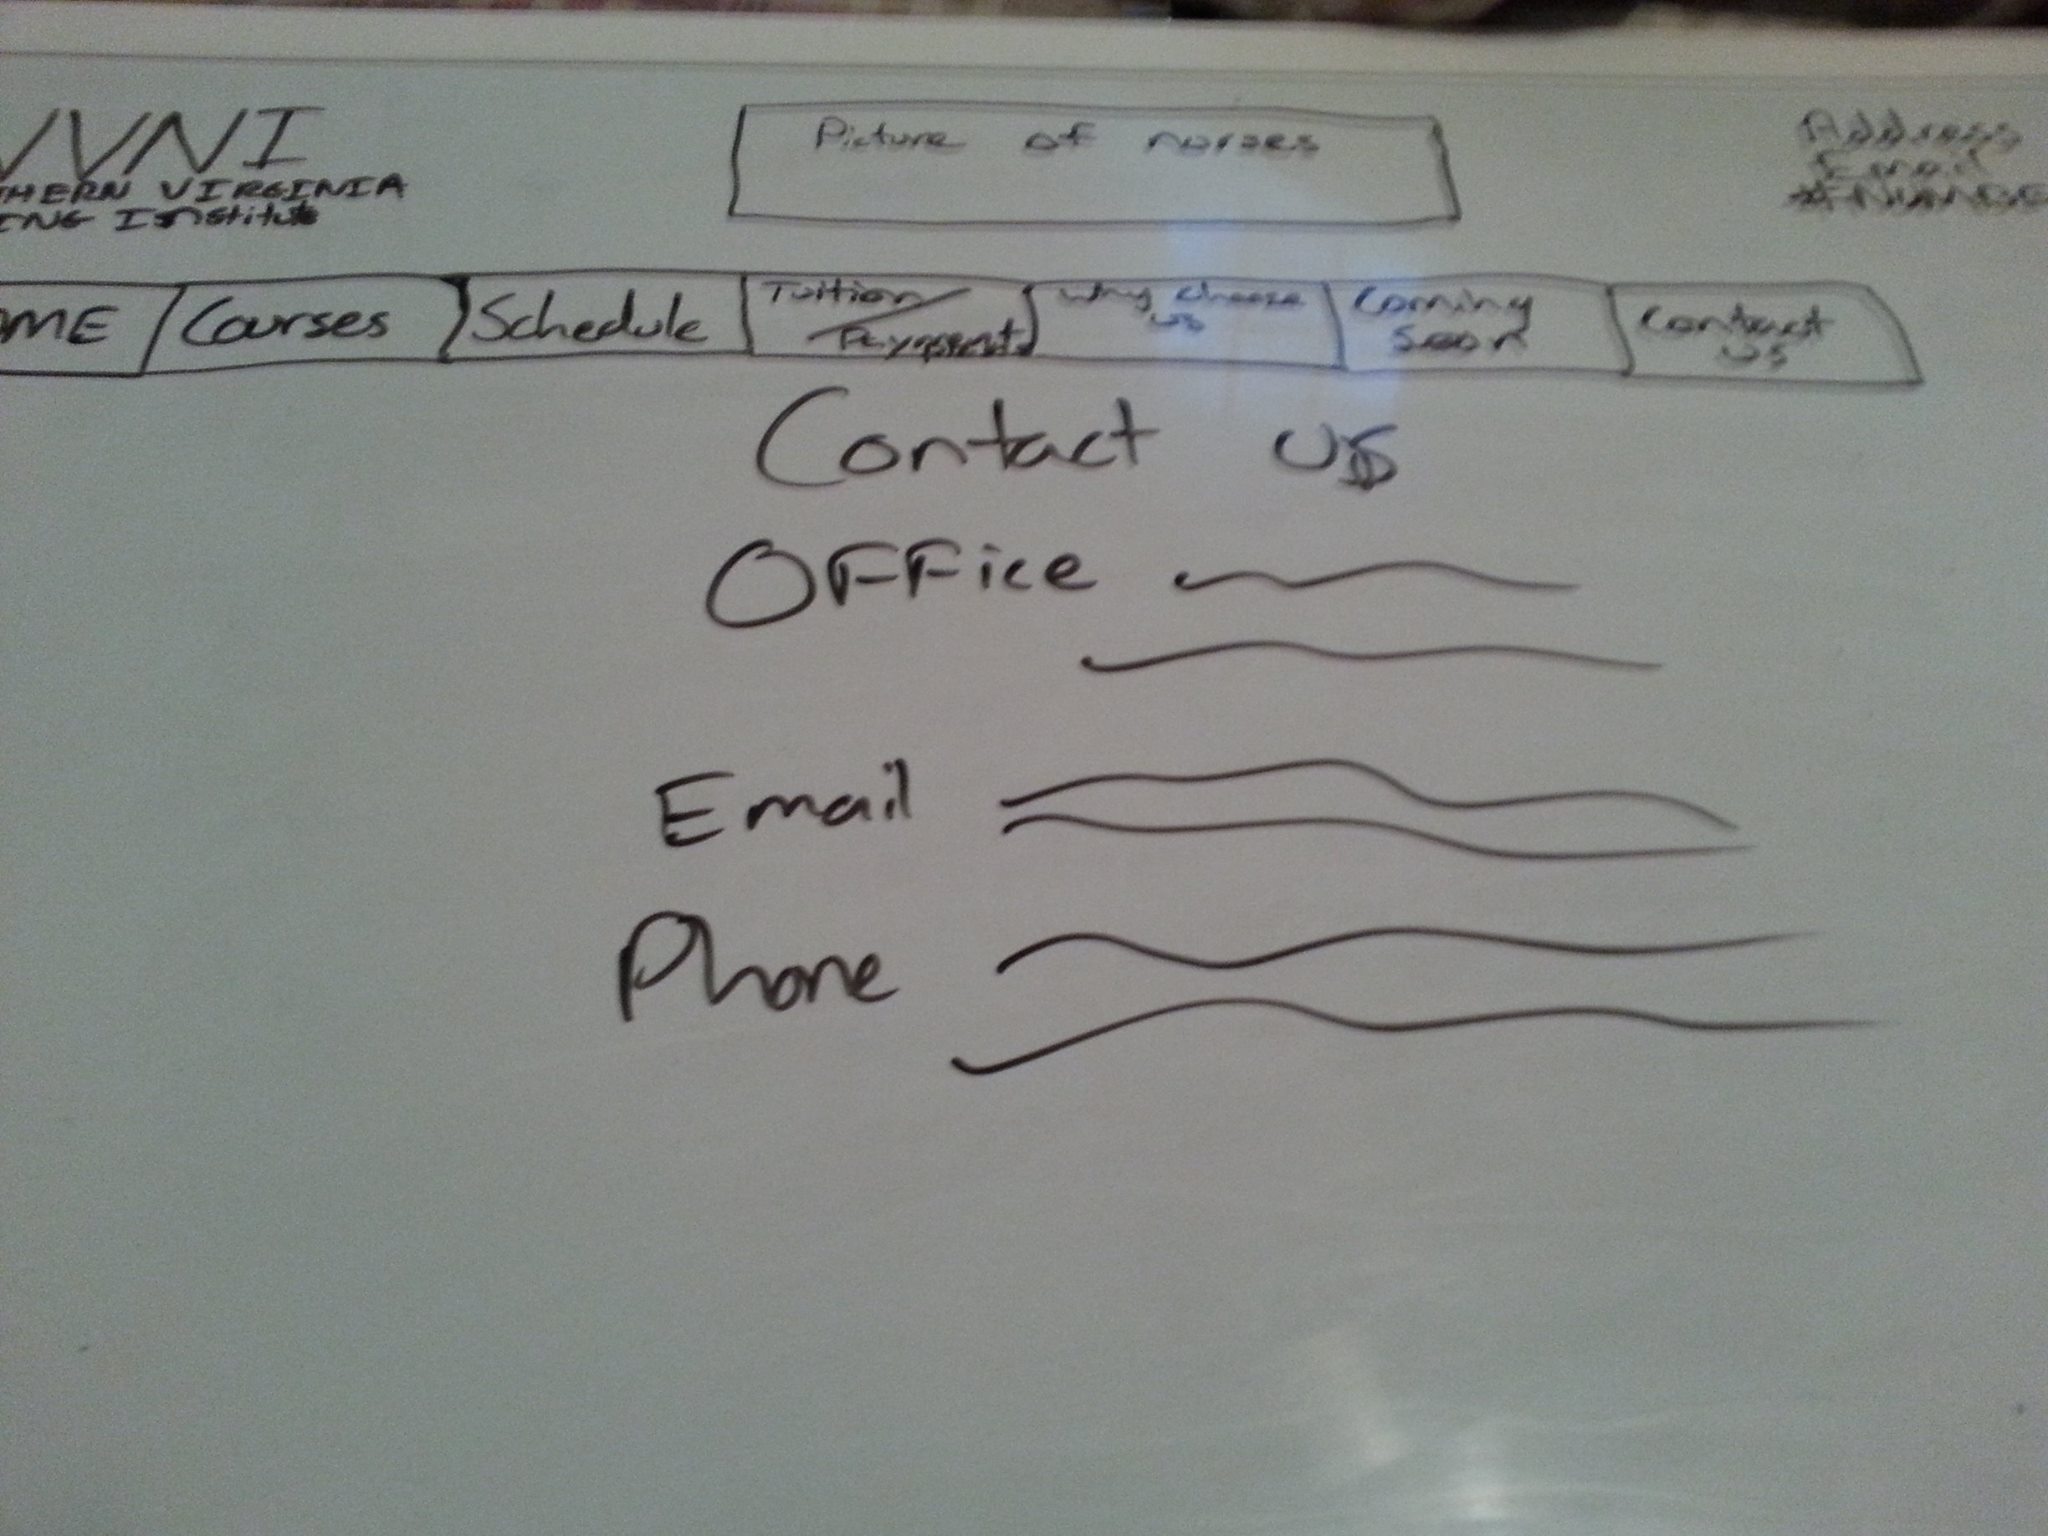 VVNI
HERN VIRGINIA
ING Institute
Picture of nurses
Address
Email
OME
Courses
Schedule
Tuition/
Payments
Why choose
us
Coming
Soon
Contact
us
Contact us
OFFice
Email
Phone